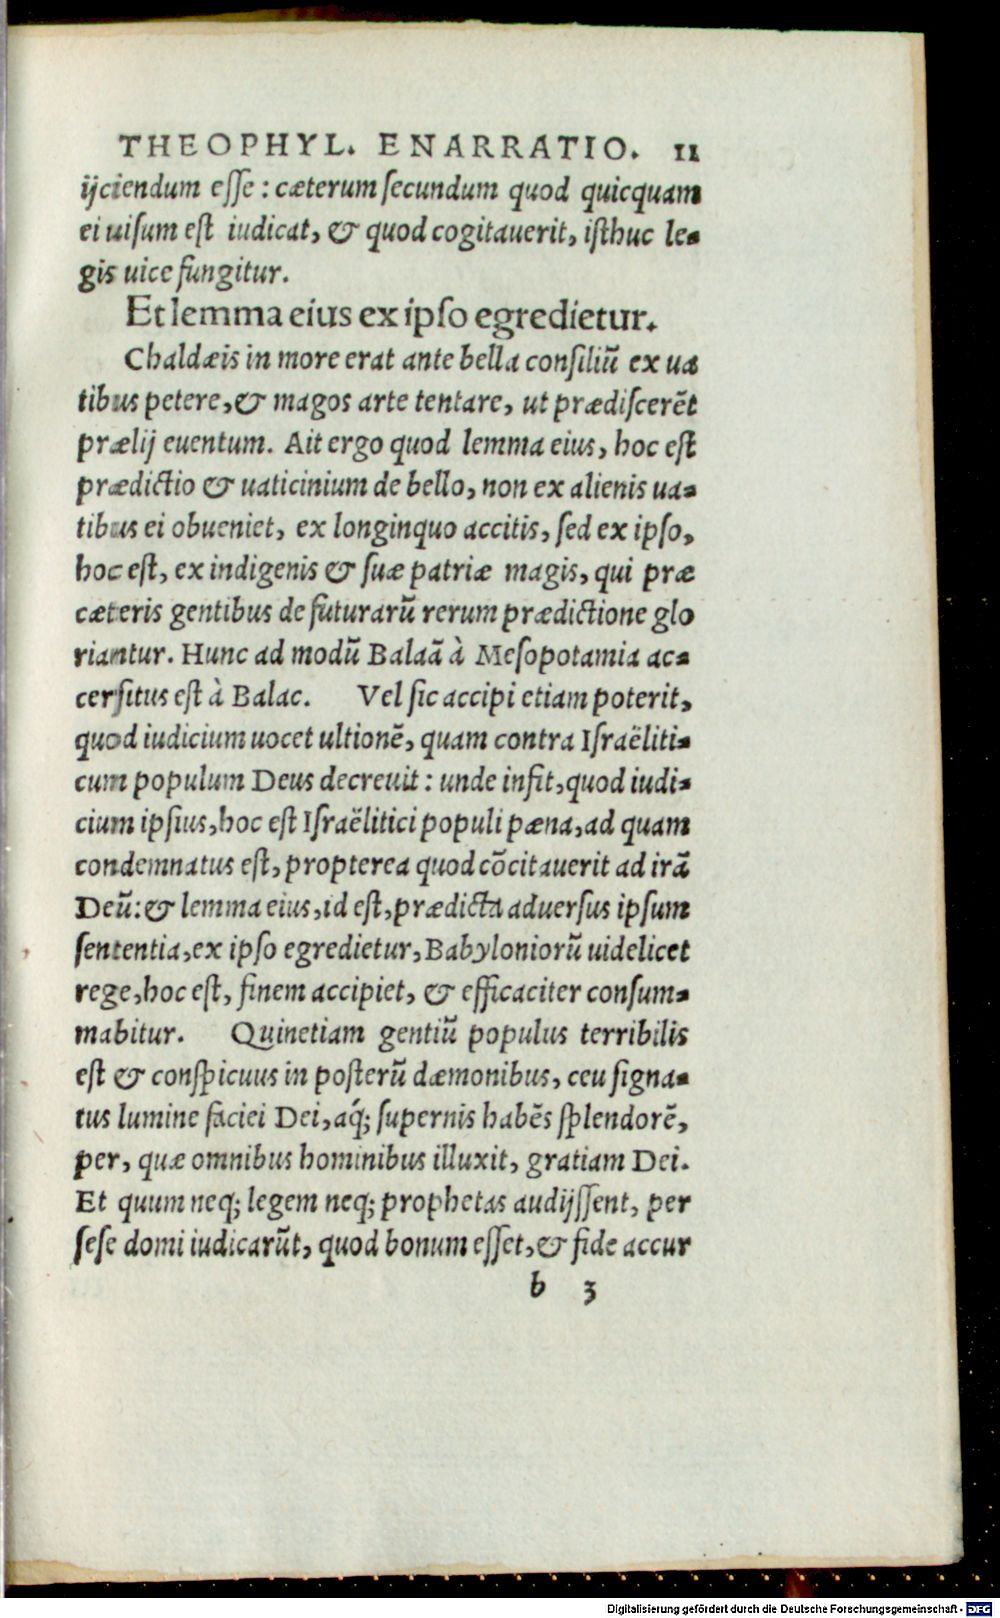 THEOPHYL. ENARRATIO. 11
ijciendum esse: cæterum secundum quod quicquam
ei uisum est iudicat, & quod cogitauerit, isthuc le-
gis uice fungitur.
Et lemma eius ex ipso egredietur.
Chaldæis in more erat ante bella consiliū ex ua
tibus petere, & magos arte tentare, ut prædiscerēt
prælij euentum. Ait ergo quod lemma eius, hoc est
prædictio & uaticinium de bello, non ex alienis ua-
tibus ei obueniet, ex longinquo accitis, sed ex ipso,
hoc est, ex indigenis & suæ patriæ magis, qui præ
cæteris gentibus de futurarū rerum prædictione glo
riantur. Hunc ad modū Balaā à Mesopotamia ac-
cersitus est à Balac. Vel sic accipi etiam poterit,
quod iudicium uocet ultionē, quam contra Israëliti-
cum populum Deus decreuit: unde infit, quod iudi-
cium ipsius, hoc est Israëlitici populi pæna, ad quam
condemnatus est, propterea quod cōcitauerit ad irā
Deū: & lemma eius, id est, prædicta aduersus ipsum
sententia, ex ipso egredietur, Babyloniorū uidelicet
rege, hoc est, finem accipiet, & efficaciter consum-
mabitur. Quinetiam gentiū populus terribilis
est & conspicuus in posterū dæmonibus, ceu signa-
tus lumine faciei Dei, aq́; supernis habēs splendorē,
per, quæ omnibus hominibus illuxit, gratiam Dei.
Et quum neq; legem neq; prophetas audijssent, per
sese domi iudicarūt, quod bonum esset, & fide accur
b 3
Digitalisierung gefördert durch die Deutsche Forschungsgemeinschaft - DFG